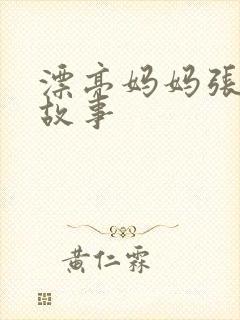 漂亮妈妈張
故事
黄仁霖